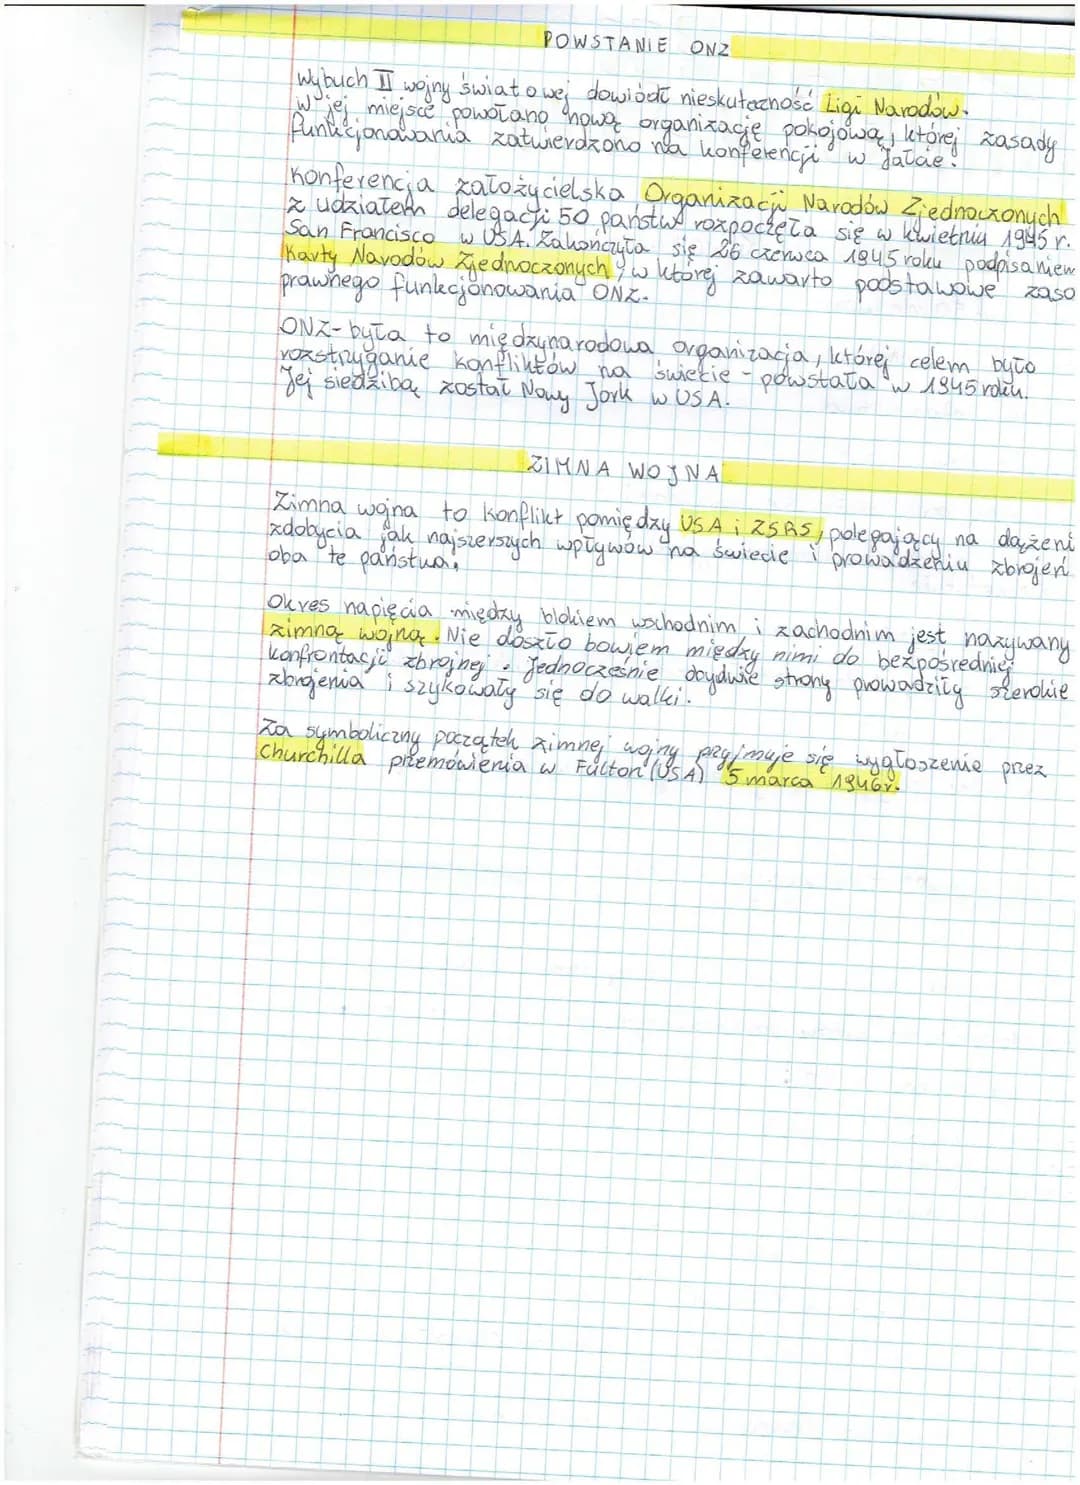 POWSTANIE ONZ
Wybuch II wojny światowej dowiódł nieskuteczność Ligi Narodów.
w jej miejsce powołano nową organizację pokojową, której zasady
funkcjonowania zatwierdzono na konferencji w Jałcie.
Konferencja założycielska Organizacji Narodów Zjednoczonych
z udziałem delegacji 50 państw rozpoczęła się w kwietniu 1945 r.
San Francisco w USA. Zakończyła się 26 czerwca 1945 roku podpisaniem
Karty Narodów Zjednoczonych, w której zawarto podstawowe zaso
prawnego funkcjonowania ONZ.
ONZ - była to międzynarodowa organizacja, której celem było
rozstrzyganie konfliktów na świecie - powstała w 1945 roku.
Jej siedzibą został Nowy Jork w USA.
ZIMNA WOJNA
Zimna wojna to konflikt pomiędzy USA i ZSRS, polegający na dążeni
zdobycia jak najszerszych wpływów na świecie i prowadzeniu zbrojeń
oba te państwa.
Okres napięcia między blokiem wschodnim i zachodnim jest nazywany
zimną wojną. Nie doszło bowiem między nimi do bezpośredniej
konfrontacji zbrojnej. Jednocześnie obydwie strony prowadziły szerokie
zbrojenia i szykowały się do walki.
Za symboliczny początek zimnej wojny przyjmuje się wygłoszenie przez
Churchilla przemówienia w Fulton (USA) 5 marca 1946r.